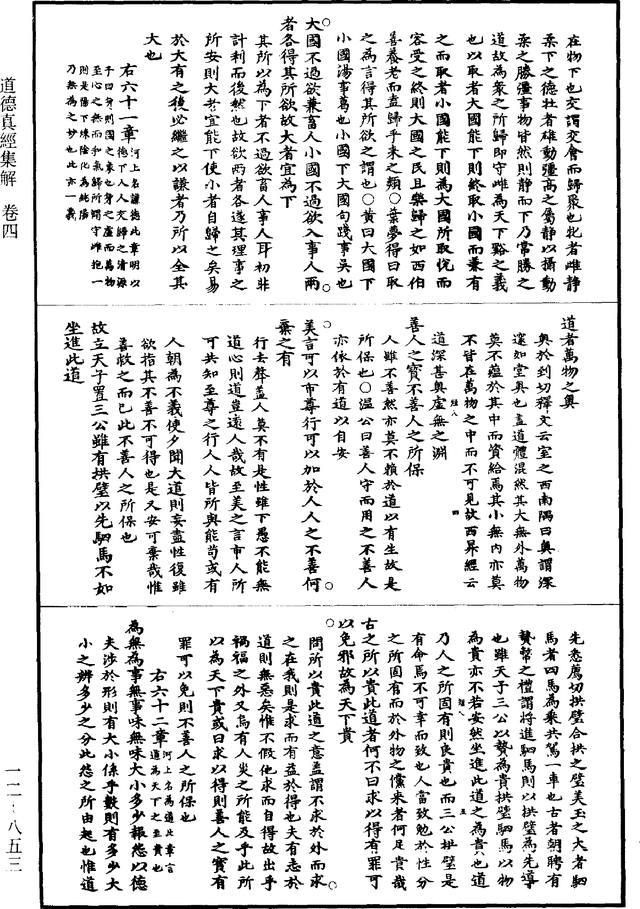 道德真經集解　卷四
在物下也交謂交會而歸聚也牝者雌靜
柔下之德牡者雄動彊高之屬靜以攝動
柔之勝彊事物皆然則靜而下乃常勝之
道故為衆之所歸即守雌為天下谿之義
也以取者大國能下則終取小國而兼有
之而取者小國能下則為大國所取恱而
容受之終則大國之民且樂歸之如西伯
善養老而盍歸乎來之類○葉夢得曰取
之為言得其所欲之謂也○黃曰大國下
小國湯事葛也小國下大國句踐事吳也
大國不過欲兼畜人小國不過欲入事人兩
者各得其所欲故大者宜為下
其所以為下者不過欲畜人事人耳初非
計利而後然也故欲兩者各遂其理事之
所安則大者宜能下使小者自歸之矣易
於大有之後必繼之以謙者乃所以全其
大也
右六十一章河上名謙德此章明以
道者萬物之奧
奧於到切釋文云室之西南隅曰奧謂深
邃如堂奧也蓋道體混然其大無外萬物
莫不蘊於其中而資給焉其小無內亦莫
不皆在萬物之中而不可見故西昇經云
道深甚奧虛無之淵
善人之寶不善人之所保
人雖不善然亦莫不賴於道以有生故是
所保也○溫公曰善人守而用之不善人
亦依於有道以自安
美言可以市尊行可以加於人人之不善何
棄之有
行去聲蓋人莫不有是性雖下愚不能無
道心則道豈遠人哉故至美之言市人所
可共知至尊之行人人皆所與能苟或有
人朝為不義使夕聞大道則妄盡性復雖
欲指其不善不可得也是又安可棄哉惟
善救之而已此不善人之所保也
故立天子置三公雖有拱璧以先駟馬不如
坐進此道
先悉薦切拱璧合拱之璧美玉之大者駟
馬者四馬為乘共駕一車也古者朝聘有
贄幣之禮謂將進駟馬則以拱璧為先導
也雖天子三公以贄為貴拱璧駟馬以物
為貴亦不若安然坐進此道之為貴也道
乃人之所固有則良貴也而三公拱璧是
有命焉不可幸而致也人當致勉於性分
之所固有而於外物之儻來者何足貴哉
古之所以貴此道者何不曰求以得有罪可
以免邪故為天下貴
問所以貴此道之意蓋謂不求於外而求
之在我則是求而有益於得也夫有志於
道則無惡矣惟不假他求而自得故出乎
禍福之外又烏有人災之所能及乎此所
以為天下貴或曰求以得則善人之寶有
罪可以免則不善人之所保也
右六十二章河上名為道此章言道為天下之至貴也
為無為事無事味無味大小多少報怨以德
夫涉於形則有大小係乎數則有多少大
小之辨多少之分此怨之所由起也惟道
一二·八五三